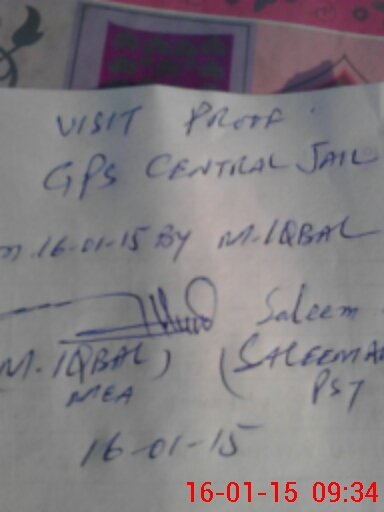 VISIT PROOF
GPS CENTRAL JAIL
16-01-15 BY M.IQBAL
Saleem
M.IQBAL) (SALEEM
MEA PST
16-01-15
16-01-15 09:34